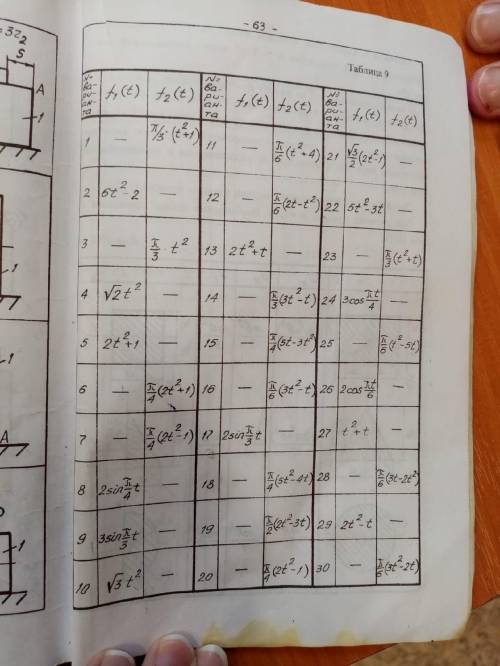 - 63 -
Таблица 9
№ ва- ри- ан- та f₁(t) f₂(t) № ва- ри- ан- та f₁(t) f₂(t) № ва- ри- ан- та f₁(t) f₂(t)
1 — π/3·(t²+1) 11 — π/6(t²+4) 21 √3/2(2t²-1) —
2 6t²-2 — 12 — π/6(2t-t²) 22 5t²-3t —
3 — π/3·t² 13 2t²+t — 23 — π/3(t²+t)
4 √2t² — 14 — π/3(3t²-t) 24 3cos πt/4 —
5 2t²+1 — 15 — π/4(5t-3t²) 25 — π/6(t²-5t)
6 — π/4(2t²+1) 16 — π/6(3t²-t) 26 2cos πt/6 —
7 — π/4(2t²-1) 17 2sin π/3 t — 27 t²+t —
8 2sin π/4 t — 18 — π/4(5t²-4t) 28 — π/6(3t-2t²)
9 3sin π/3 t — 19 — π/2(2t²-3t) 29 2t²-t —
10 √3t² — 20 — π/4(2t²-1) 30 — π/6(3t²-2t)
=3r₂
S
A
1
1
1
A
1